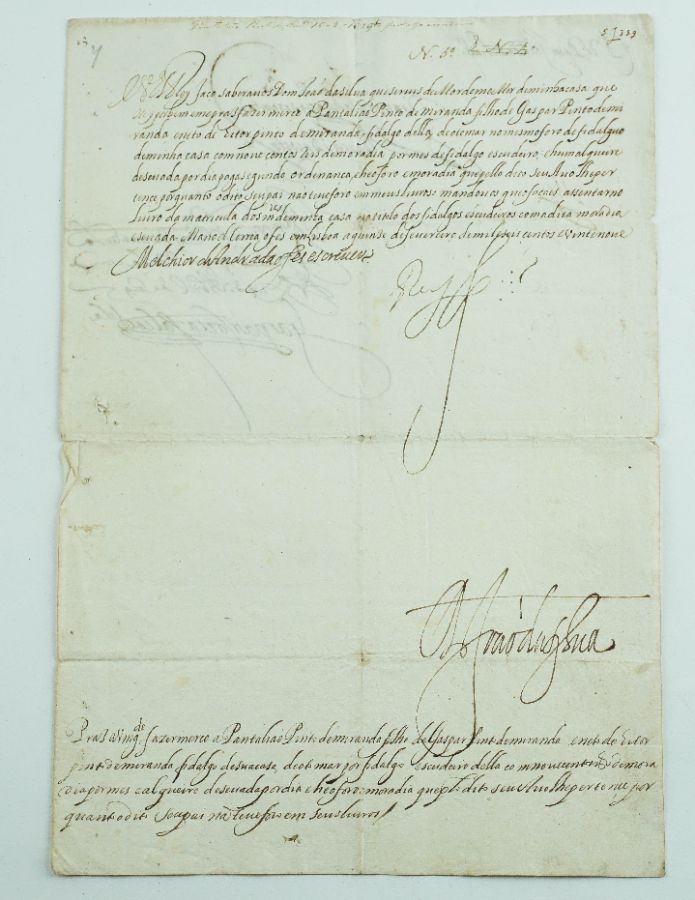 N. 5º
Eu El Rey faço saber a vos Dom João da silva que seruis de Mordomo Mor de minha casa que
Hey por bem e me praz fazer merce a Pantalião Pinto de Miranda filho de Gaspar Pinto de mi
randa e neto de Eitor pinto de miranda fidalgo della, de o tomar no mesmo foro de fidalguo
de minha casa com noue centos reis de moradia por mes de fidalgo escudeiro, e hum alqueire
de seuada por dia paga segundo ordenança, e he o foro e moradia que pello dito seu Auo lhe per
tence porquanto o dito seu pai não teue foro em meus liuros: mando uos que o façaes assentar no
liuro da matricula dos m.res de minha casa no titulo dos fidalgos escudeiros com a dita moradia
e seuada. Manoel de lemos o fes em Lisboa a quinse de feuereiro de mil e seis centos e vinte noue
Melchior de Andrada o fes escreuer.
Rey
Dom João da silua
Praz a V. mag.de fazer merce a Pantalião Pinto de miranda filho de Gaspar Pinto de miranda e neto de Eitor
pinto de miranda fidalgo de sua casa, de o tomar por fidalgo escudeiro della com noue centos rs de mora
dia por mes e alqueire de seuada por dia e he o foro e moradia que pelo dito seu Auo lhe pertence por
quanto o dito seu pai não teue foro em seus liuros